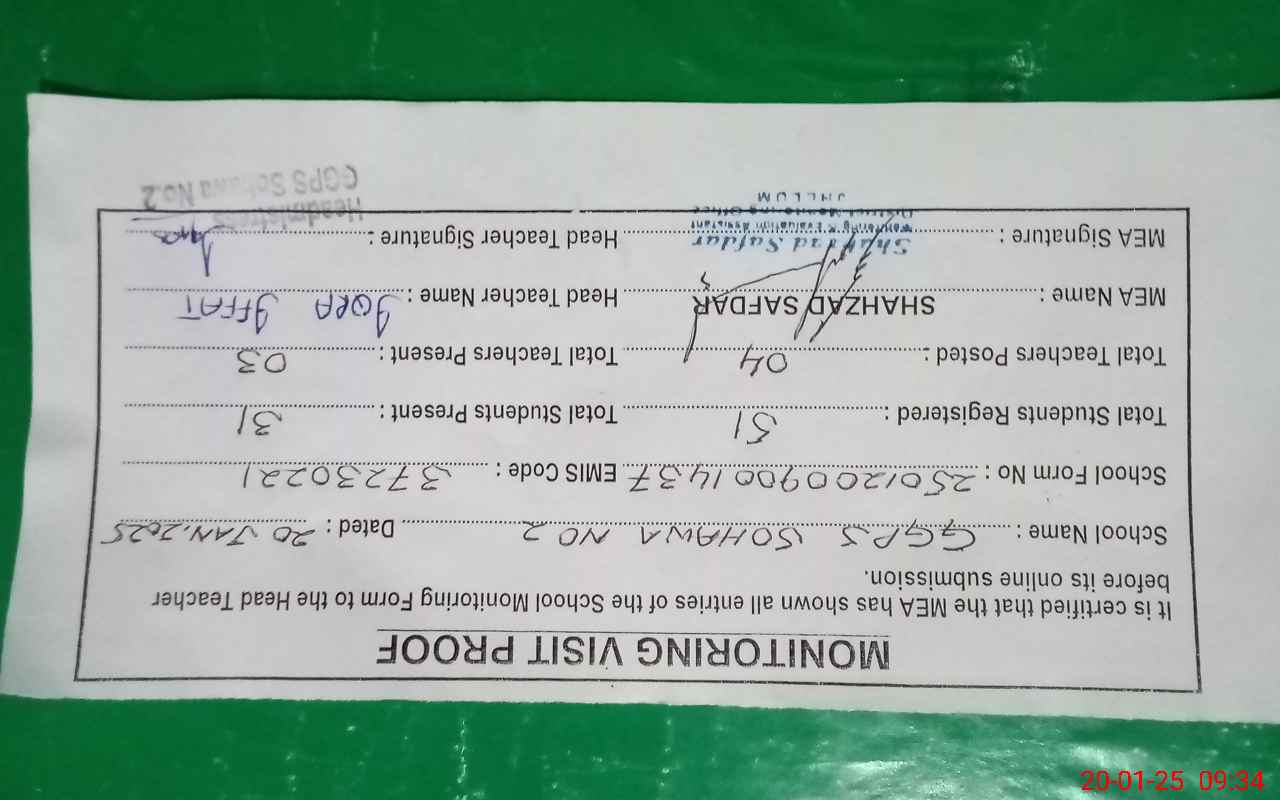 MONITORING VISIT PROOF
It is certified that the MEA has shown all entries of the School Monitoring Form to the Head Teacher
before its online submission.
School Name : GGPS SOHAWA NO 2 Dated : 20 JAN, 2025
School Form No : 25012009001437 EMIS Code : 37230221
Total Students Registered : 51 Total Students Present : 31
Total Teachers Posted : 04 Total Teachers Present : 03
MEA Name : SHAHZAD SAFDAR Head Teacher Name : IQRA IFFAT
MEA Signature : Head Teacher Signature :
Shahzad Safdar
Monitoring & Evaluation Assistant
District Monitoring Office
JHELUM
Headmistress
GGPS Sohawa No.2
20-01-25 09:34